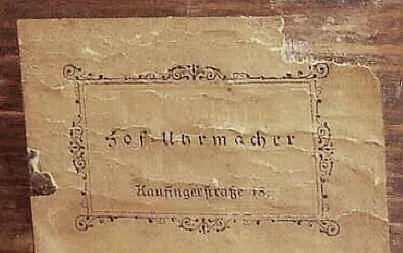 Hof-Uhrmacher
Kaufingerstraße